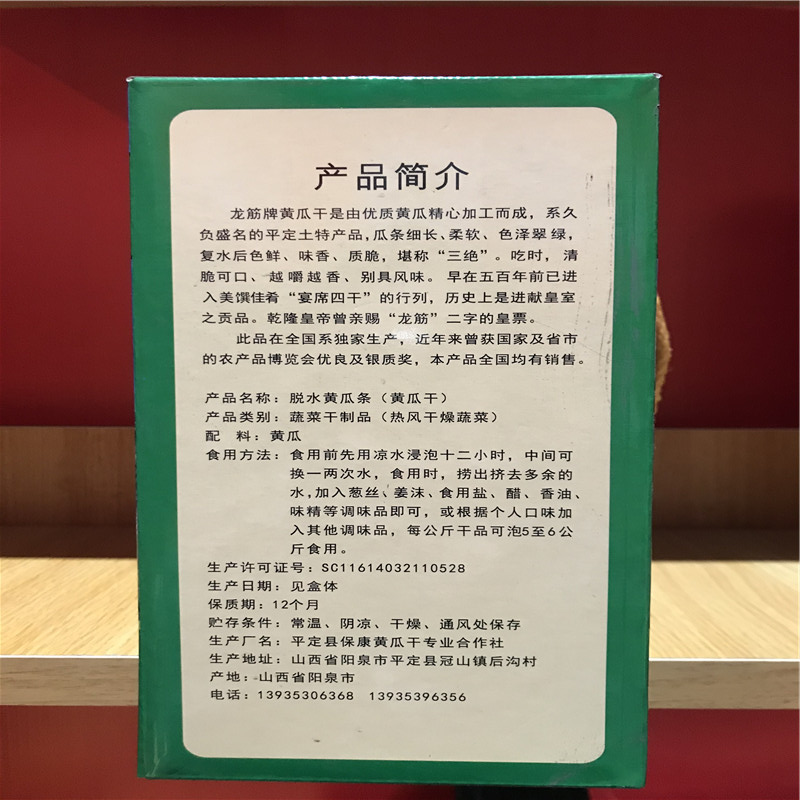 产品简介
龙筋牌黄瓜干是由优质黄瓜精心加工而成，系久
负盛名的平定土特产品,瓜条细长、柔软、色泽翠绿,
复水后色鲜、味香、质脆，堪称“三绝”。吃时，清
脆可口、越嚼越香、别具风味。早在五百年前已进
入美馔佳肴“宴席四干”的行列，历史上是进献皇室
之贡品。乾隆皇帝曾亲赐“龙筋”二字的皇票。
此品在全国系独家生产，近年来曾获国家及省市
的农产品博览会优良及银质奖，本产品全国均有销售。
产品名称：脱水黄瓜条（黄瓜干）
产品类别：蔬菜干制品（热风干燥蔬菜）
配 料：黄瓜
食用方法：食用前先用凉水浸泡十二小时，中间可
换一两次水，食用时，捞出挤去多余的
水,加入葱丝、姜沫、食用盐、醋、香油、
味精等调味品即可，或根据个人口味加
入其他调味品，每公斤干品可泡5至6公
斤食用。
生产许可证号：SC11614032110528
生产日期：见盒体
保质期：12个月
贮存条件：常温、阴凉、干燥、通风处保存
生产厂名：平定县保康黄瓜干专业合作社
生产地址：山西省阳泉市平定县冠山镇后沟村
产地：山西省阳泉市
电话：13935306368 13935396356